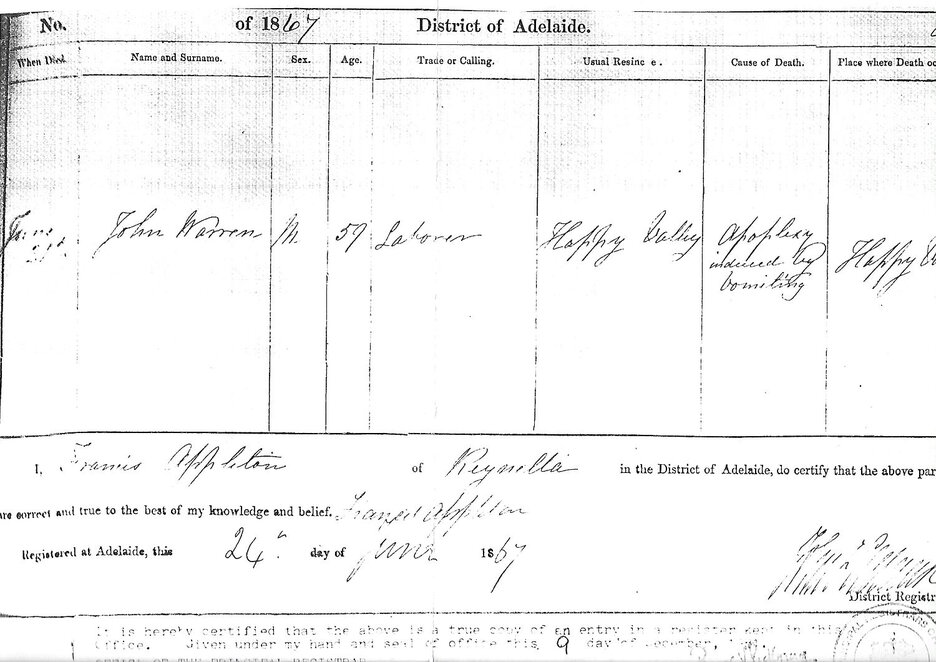 No. of 1867 District of Adelaide.
When Died. Name and Surname. Sex. Age. Trade or Calling. Usual Resinc e. Cause of Death. Place where Death oc
June John Warren M. 59 Laborer Happy Valley Apoplexy
21st induced by Happy
Vomiting
I, Francis Appleton of Reynella in the District of Adelaide, do certify that the above par
are correct and true to the best of my knowledge and belief. Francis Appleton
Registered at Adelaide, this 24th day of June 1867
District Registr
It is hereby certified that the above is a true copy of an entry in a register kept in this
Office. Given under my hand and seal of office this 9 day of December,